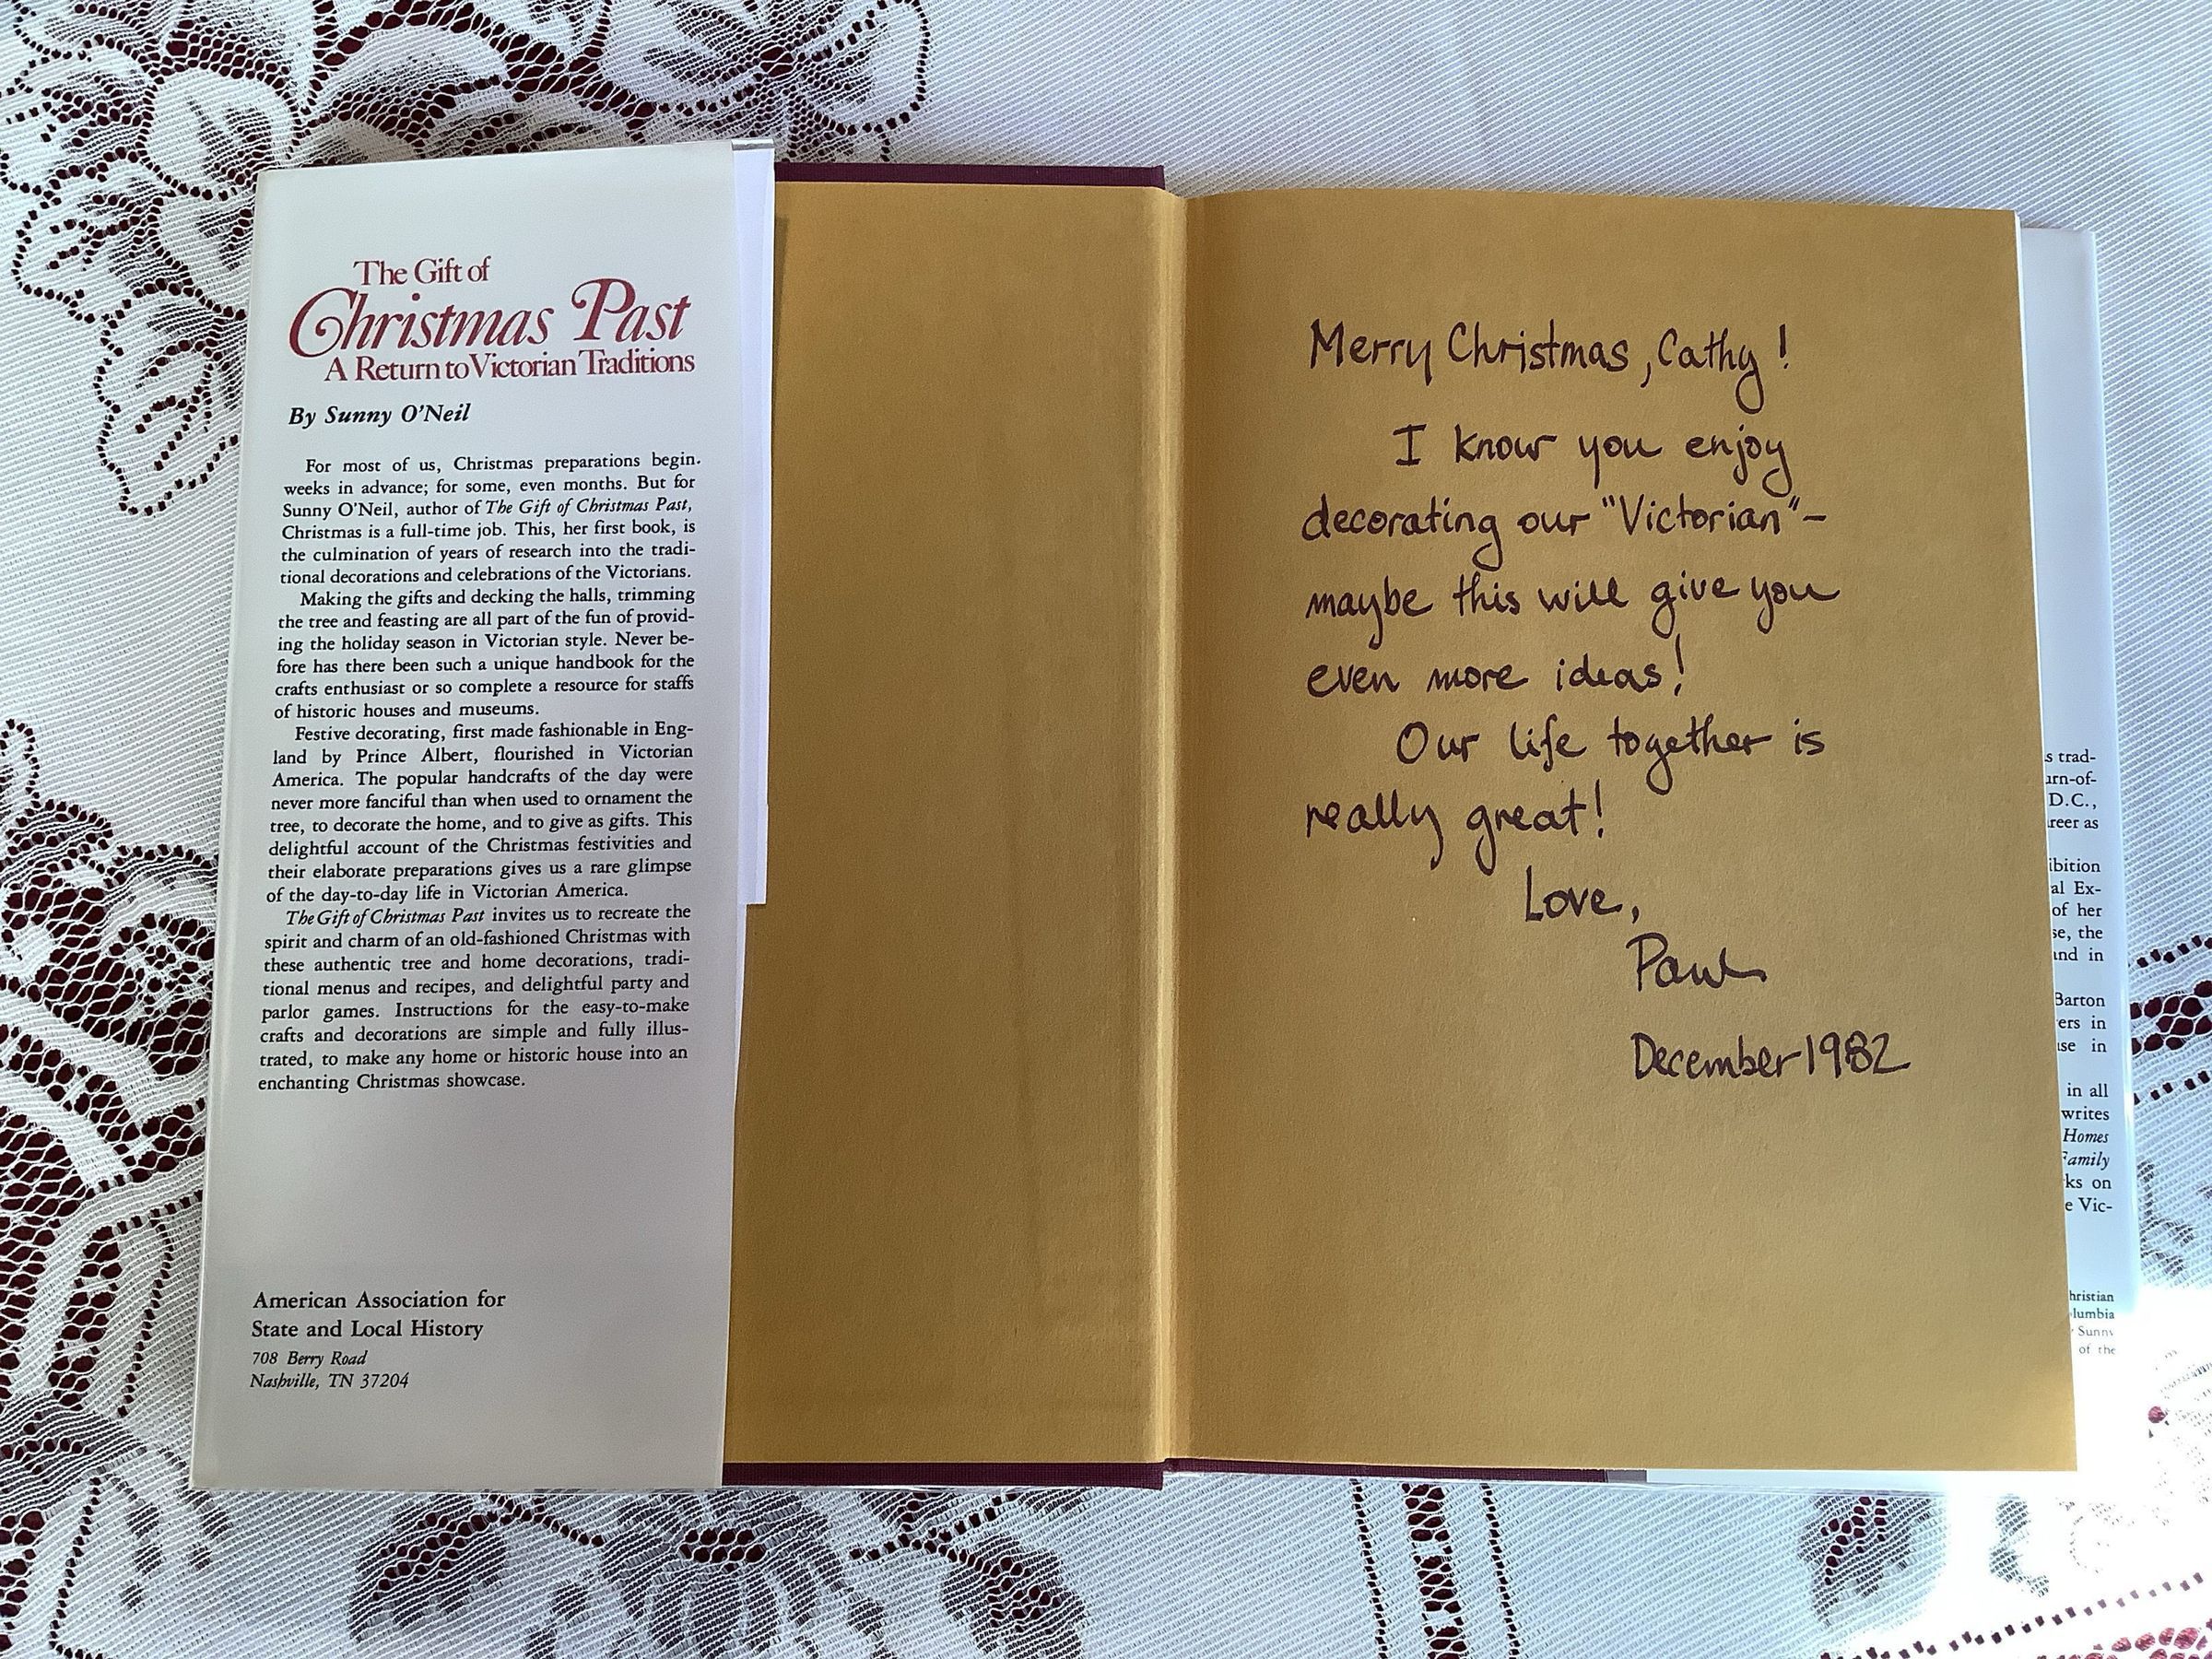 The Gift of
Christmas Past
A Return to Victorian Traditions
By Sunny O'Neil
For most of us, Christmas preparations begin.
weeks in advance; for some, even months. But for
Sunny O'Neil, author of The Gift of Christmas Past,
Christmas is a full-time job. This, her first book, is
the culmination of years of research into the tradi-
tional decorations and celebrations of the Victorians.
Making the gifts and decking the halls, trimming
the tree and feasting are all part of the fun of provid-
ing the holiday season in Victorian style. Never be-
fore has there been such a unique handbook for the
crafts enthusiast or so complete a resource for staffs
of historic houses and museums.
Festive decorating, first made fashionable in Eng-
land by Prince Albert, flourished in Victorian
America. The popular handcrafts of the day were
never more fanciful than when used to ornament the
tree, to decorate the home, and to give as gifts. This
delightful account of the Christmas festivities and
their elaborate preparations gives us a rare glimpse
of the day-to-day life in Victorian America.
The Gift of Christmas Past invites us to recreate the
spirit and charm of an old-fashioned Christmas with
these authentic tree and home decorations, tradi-
tional menus and recipes, and delightful party and
parlor games. Instructions for the easy-to-make
crafts and decorations are simple and fully illus-
trated, to make any home or historic house into an
enchanting Christmas showcase.
American Association for
State and Local History
708 Berry Road
Nashville, TN 37204
Merry Christmas, Cathy!
I know you enjoy
decorating our "Victorian"-
maybe this will give you
even more ideas!
Our life together is
really great!
Love,
Paul
December 1982
trad-
D.C.,
as
of her
the
in
Barton
in
in
in all
writes
Homes
Family
on
Vic-
Sunny
of the